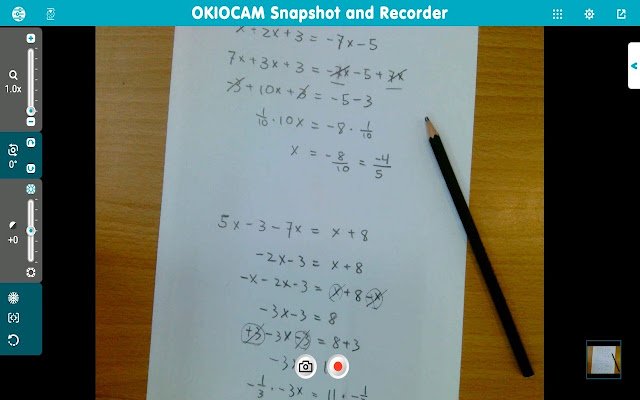 OKIOCAM Snapshot and Recorder
1.0x
0°
+0
x + 2x + 3 = -7x - 5
7x + 3x + 3 = -7x - 5 + 7x
-3 + 10x + 3 = -5 - 3
1/10 · 10x = -8 · 1/10
x = -8/10 = -4/5
5x - 3 - 7x = x + 8
-2x - 3 = x + 8
-x - 2x - 3 = x + 8 - x
-3x - 3 = 8
+3 - 3x - 3 = 8 + 3
-3x
-1/3 · -3x = 11 · -1/3